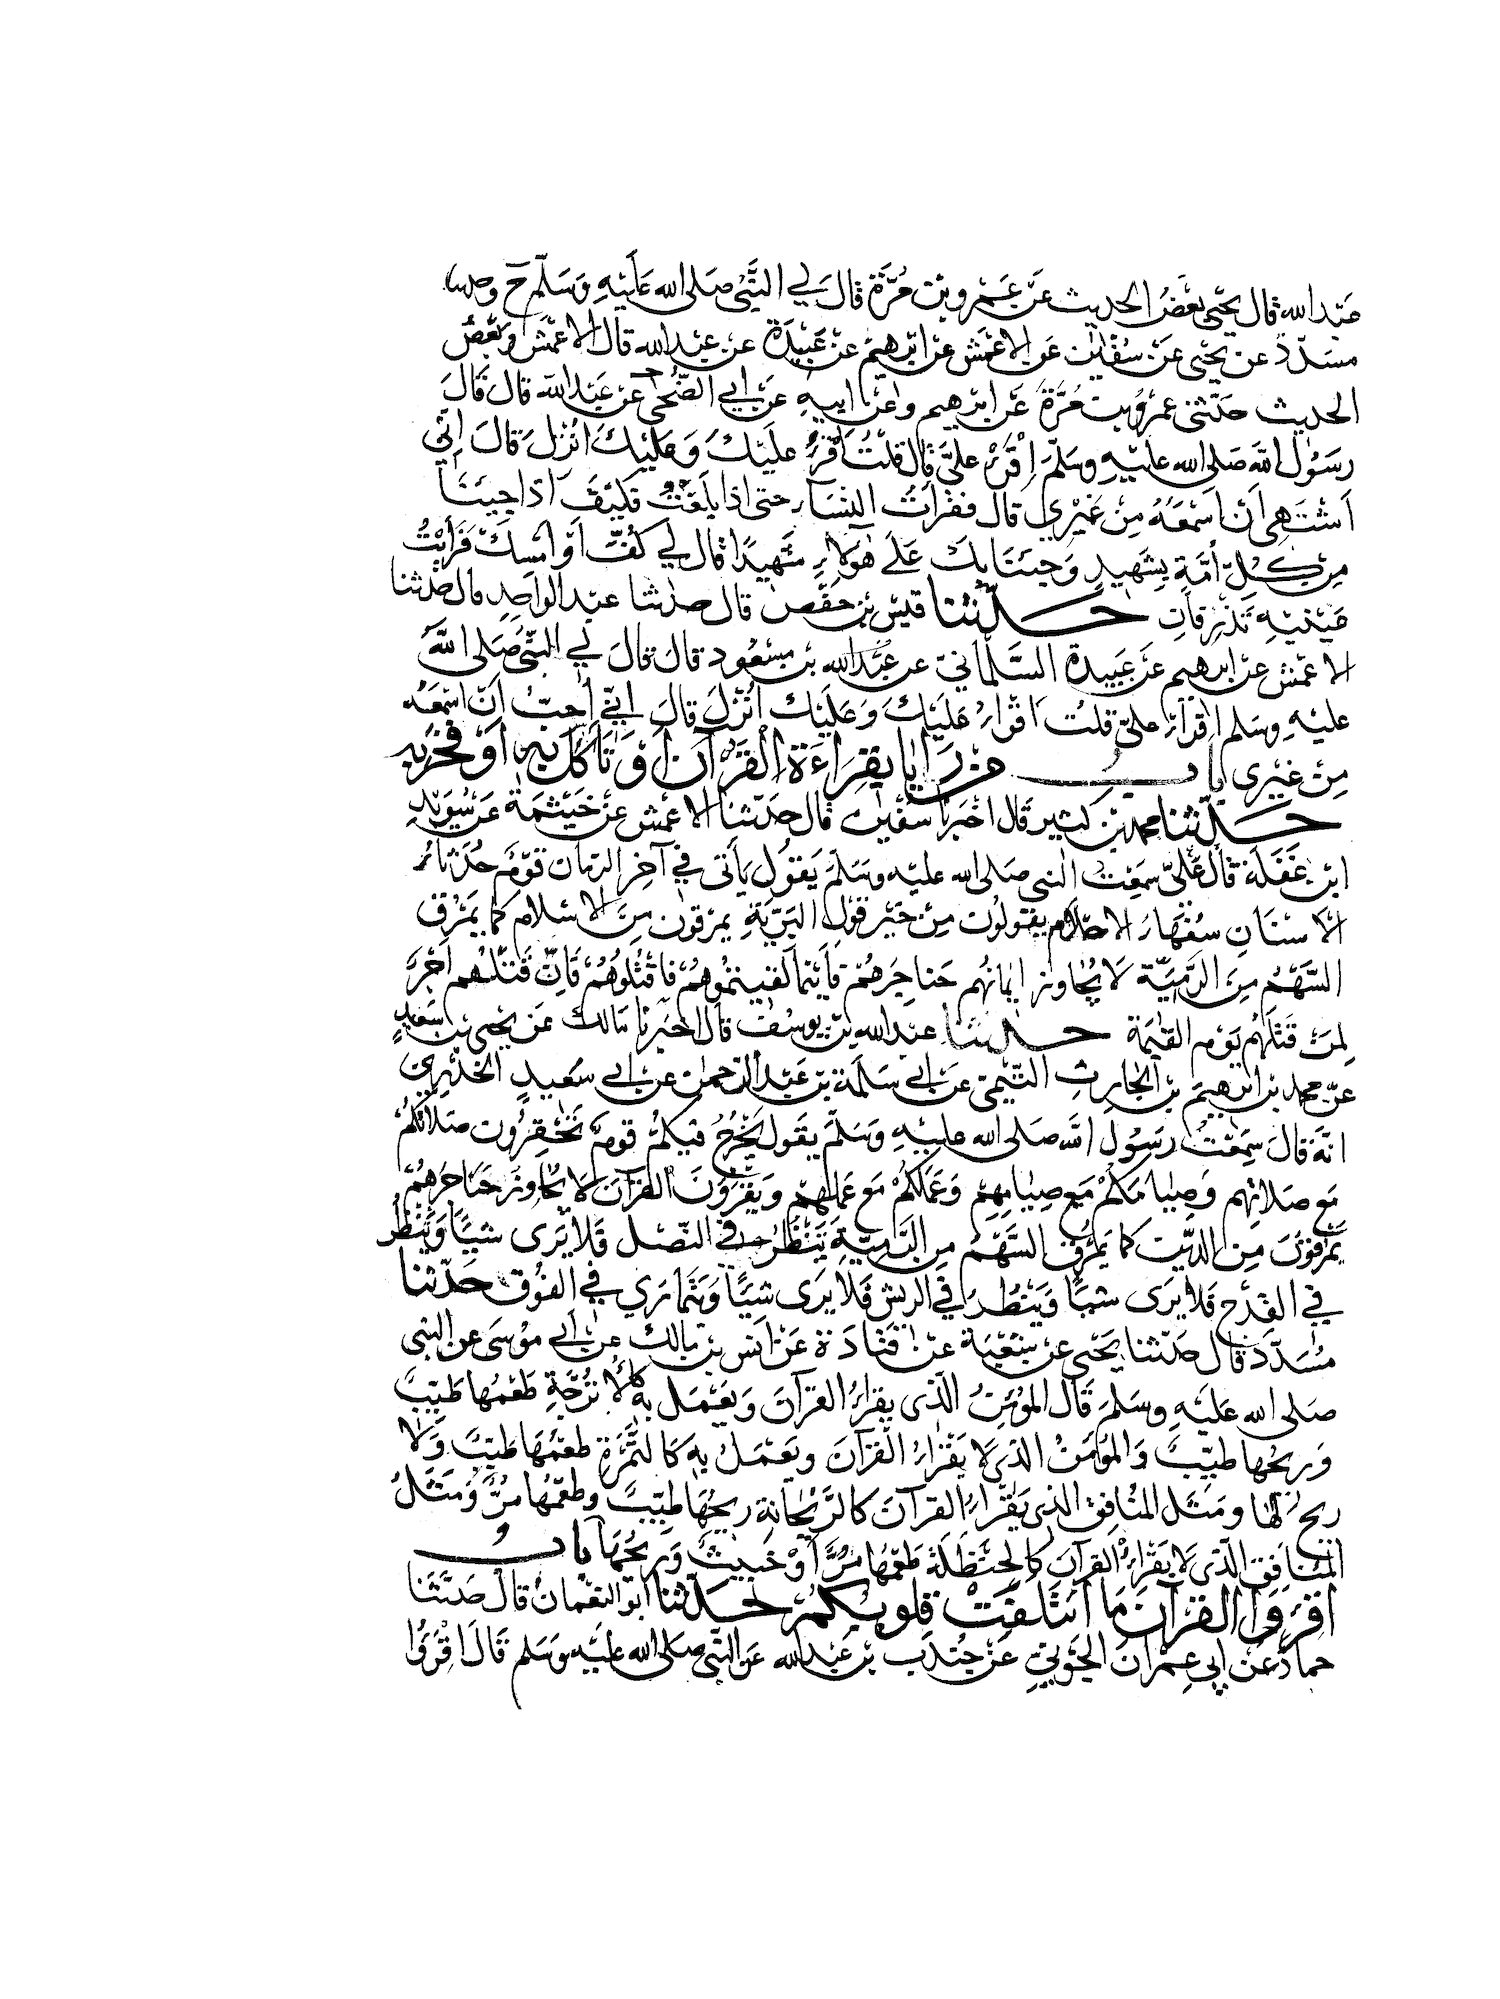 عبد الله قال يحيى بعض الحديث عن عمرو بن مُرَّة قال لي النبي صلى الله عليه وسلم ح وحدثنا
مسدّد عن يحيى عن سفيٰن عن الاعمش عن ابرهيم عن عَبِيدَة عن عبد الله قال الاعمش وبعض
الحديث حدّثني عمرو بن مُرَّة عن ابرهيم وعن ابيه عن ابي الضُّحى عن عبد الله قال قال
رسول الله صلى الله عليه وسلم اِقْرَأْ عليَّ قال قلتُ اَقْرَأُ عليكَ وعليكَ اُنْزِل قالَ اِنّي
اَشْتَهِي اَنْ اَسْمَعَهُ مِنْ غَيْرِي قال فقرأتُ النسآء حتى اذا بلغتُ فكيفَ اذا جيئنَا
من كلّ اُمَّةٍ بِشَهِيدٍ وَجِئنَا بكَ عَلَى هٰؤلاءِ شَهِيدًا قال لي كُفَّ اَوْ اَمْسِكْ فَرَأَيْتُ
عَيْنَيهِ تَذْرِفَانِ حدّثنا قيس بن حَفْص قال حدثنا عبد الواحِدِ قال حدثنا
الاعمش عن ابرهيم عن عَبِيدة السَّلْمَانيّ عن عَبْدِ الله بن مسْعُود قالَ قالَ لي النبيّ صلى اللهُ
عليهِ وسلم اِقرأ عليّ قلتُ اَقْرأُ عَلَيْكَ وَعَلَيْكَ اُنْزِلَ قالَ اِنّي اُحِبُّ اَنْ اَسْمَعَهُ
مِنْ غيرى بابُ من رايا بقِرَاءَةِ القُرْآنِ اَوْ تَأَكَّلَ بِهِ اَوْ فخَرَ بِهِ
حدّثنا محمد بن كثير قال اخبرنا سُفيٰن قال حدّثنا الاعمش عن خَيْثَمَة عن سُوَيْدِ
ابن غَفَلَة قال عَليّ سمعتُ النبي صلى الله عليه وسلم يَقولُ يأتى في آخِرِ الزمان قومٌ حُدَثاءُ
الاسْنانِ سُفَهاءُ الاحلامِ يقولون مِن خيرِ قولِ البَرِيّةِ يمرقون مِنَ الاِسلام كما يَمْرُق
السَّهْمُ مِنَ الرَّمِيّة لا يُجاوز ايمانُهم حَناجِرَهُمْ فاَيْنَما لَقيتموهُمْ فاقْتُلُوهُمْ فاِنَّ قَتْلَهم اَجْرٌ
لِمَنْ قَتَلَهُمْ يَوْم القيٰمة حدثنا عبد الله بن يوسف قال اخبرنا مالك عن يحيى بن سَعيدٍ
عن محمد بن ابرهيمَ بن الحارثِ التَّيْميّ عن ابي سلمة بن عبد الرحمٰن عن ابي سعيدٍ الخدْرِيّ
انّه قالَ سَمِعْتُ رسَولَ الله صلى الله عليهِ وسلّم يقول يَخْرُجُ فيكمْ قومٌ تَحْقِرون صلاتكُم
مَع صلاتِهم وَصيامَكم مَع صيامِهِمْ وَعَملَكُمْ مَع عَملِهم وَيقْرَؤنَ القرآنَ لا يُجاوزُ حَناجرَهمْ
يَمْرقونَ مِن الدّين كما يَمْرُق السَّهْمُ مِن الرَّمِيّةِ يَنْظُرُ في النّصْل فَلا يَرى شيئًا وَيَنظُرُ
في القِدْحِ فَلا يَرَى شيئًا وَيَنظُرُ في الريش فَلا يرَى شيئًا وَيَتمارَي في الفُوق حَدّثنا
مُسَدّدٌ قال حدّثنا يَحْيى عن شعْبَة عن قَتَادَة عَن اَنَس بن مالك عن ابي موْسَى عن النبي
صلى الله عَليهِ وسَلمَ قال المؤمِنُ الّذي يقرأُ القرآنَ وَيَعْمَل به كالاُترُجّةِ طعْمُها طَيّبٌ
وَريحُها طيّبٌ وَالمؤمنُ الذي لا يَقْرَأُ القُرْآنَ ويَعْمَلُ بهِ كالتمْرَةِ طعْمُهَا طَيّبٌ وَلا
ريحَ لها ومَثَل المنافِقِ الذى يَقْرأُ القرآنَ كالرّيْحَانةِ ريحُهَا طيّبٌ وطعْمُها مُرٌّ وَمَثَلُ
المنافِقِ الّذي لا يَقْرَأُ القرآنَ كالحنظَلة طَعْمُها مُرٌّ اَوْ خَبيثٌ وَريحُهَا بابُ
اقرؤا القرآنَ مَا ائتَلَفَتْ قلوبكم حدّثنا ابو النعْمان قال حدَّثنَا
حمادٌ عن ابي عِمْران الجَوْنيّ عَن جُنْدَبِ بن عبد الله عن النّبي صلى الله عليه وَسَلم قالَ اقْرَؤا